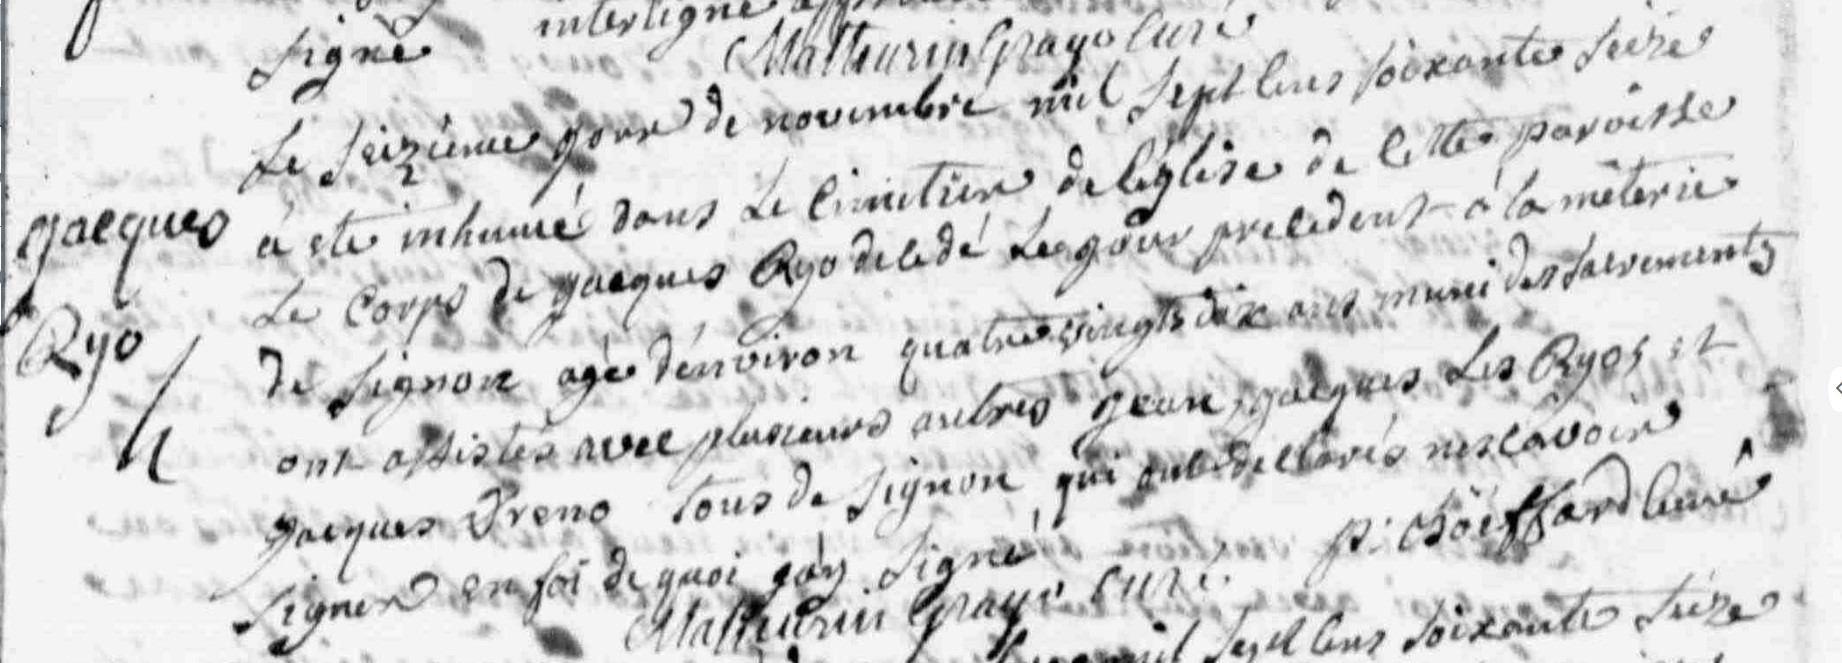 interligne
signé
Mathurin Grayo curé
Le seizieme jour de novembre mil sept cens soixante seize
Jacques
à eté inhumé dans le cimetier de léglise de cette paroisse
Le corps de jacques Ryo decedé le jour precedent à la méterie
Ryo
de signon agé dénviron quatre vingts dix ans muni des sacrements
ont assistés avec plusieurs autres jean, jacques Les Ryos et
jacques tous de signon qui ont declarés ne scavoir
signer en foi de quoi jáy signé
Mathurin Grayo curé
mil sept cens soixante seize